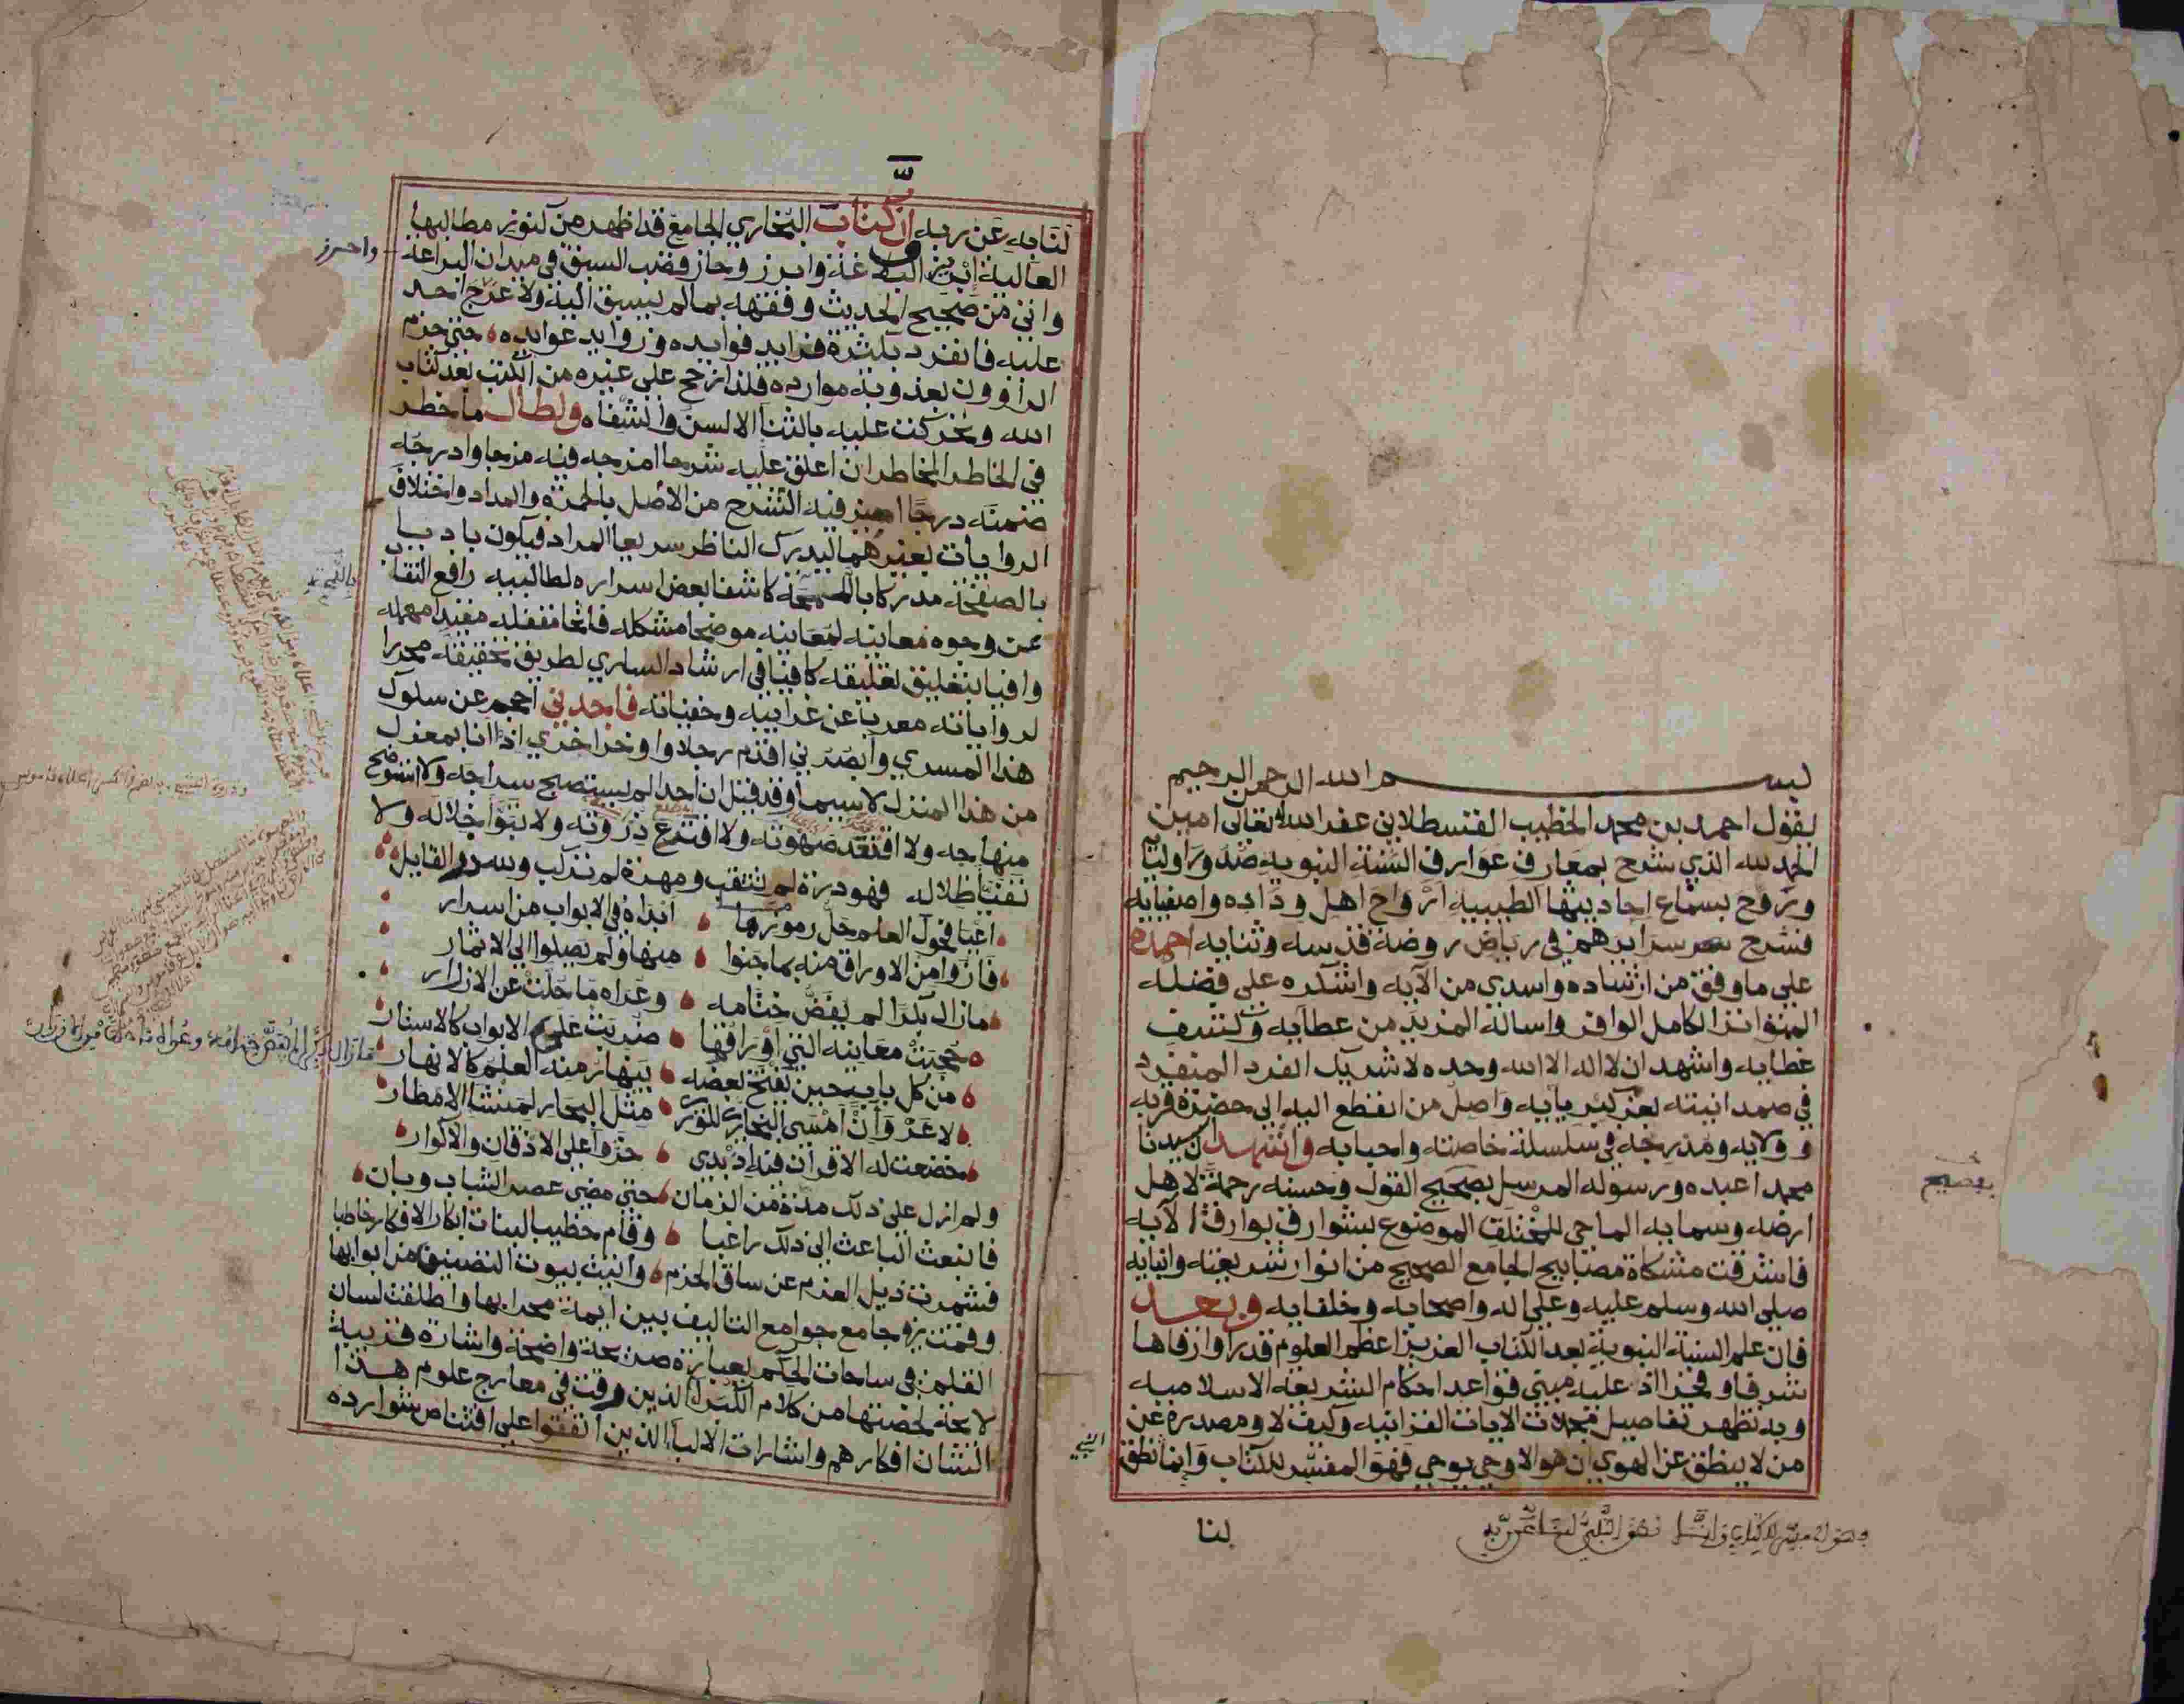 بسم الله الرحمن الرحيم
يقول احمد بن محمد الخطيب القسطلاني غفر الله له تعالى امين
الحمد لله الذي شرح بمعارف عوارف السنة النبوية صدور اوليآ
وروح بسماع احاديثها الطيبية ارواح اهل ودّاده واصفيايه
فسرح سر سرايرهم في رياض روضة قدسه وثنايه احمده
على ما وفق من ارشاده واسدي من الآيه واشكره على فضله
المتواتر الكامل الوافر واساله المزيد من عطآيه وكشف
غطايه واشهد ان لا اله الا الله وحده لا شريك الفرد المنفرد
في صمدانيته بعز كبريآيه واصل من انقطع اليه الى حضرة قربه
وولايه ومدرجه في سلسلة خاصته واحبايه واشهد ان سيدنا
محمدا عبده ورسوله المرسل بصحيح القول وحسنه رحمة لاهل
ارضه وسمايه الماحي للمختلق الموضوع بشوارق بوارق الآيه
فاشرقت مشكاة مصابيح الجامع الصحيح من انوار شريعته وانبايه
صلى الله وسلم عليه وعلى اله واصحابه وخلفايه وبعد
فان علم السنة النبوية بعد الكتاب العزيز اعظم العلوم قدرا وارقاها
شرفا وفخرا اذ عليه مبنى قواعد احكام الشريعة الاسلاميه
وبه تظهر تفاصيل مجملات الايات القرانيه وكيف لا ومصدره عن
من لا ينطق عن الهوي ان هو الا وحي يوحي فهو المفسر للكتاب وانما نطق
لنا
النبي
لنا به عن ربه ان كتاب البخاري الجامع قد اظهر من كنوز مطالبها
العالية ابريز البلاغة وابرز وحاز قصب السبق في ميدان البراعة
واحرز
واتى من صحيح الحديث وفقهه بما لم يسبق اليه ولا عرج احد
عليه فانفرد بكثرة فرايد فوايده وزوايد عوايده حتى جزم
الراوون بعذوبة موارده فلذا رجح على غيره من الكتب بعد كتاب
الله وتحركت عليه بالثنا الالسن والشفاه ولطال ما خطر
في الخاطر المخاطر ان اعلق عليه شرحا امزجه فيه مزجا وادرجه
ضمنه درجا اميز فيه الشرح من الاصل بالحمرة والمداد واختلاف
الروايات بغيرهما ليدرك الناظر سريعا المراد فيكون باديا
بالصفحة مدركا باللمحة كاشفا بعض اسراره لطالبيه رافع النقاب
عن وجوه معانيه لمعانيه موضحا مشكله فاتحا مقفله مقيدا مهمله
وافيا بتغليق تعليقه كافيا في ارشاد الساري لطريق تحقيقه محررا
لرواياته معربا عن غرايبه وخفياته فاجدني احجم عن سلوك
هذا المسري وابصرني اقدم رجلا واوخر اخري اذ انا بمعزل
من هذا المنزل لا سيما وقد قيل ان احدا لم يستصبح سراجه ولا استوضح
منهاجه ولا اقتعد صهوته ولا افترع ذروته ولا تبوا خلاله ولا
تفيا ظلاله فهو درة لم تثقب ومهرة لم تركب ولله در القايل
اعيا فحول العلم حل رموز ما ابداه في الابواب من اسرار
فازوا من الاوراق منه بما جنوا منها ولم يصلوا الى الاثمار
ما زال بكرا لم يفض ختامه وعراه ما حلت عن الازرار
حجبت معانيه التي اوراقها ضربت على الابواب كالاستار
من كل باب حين يفتح بعضه ينهار منه العلم كالانهار
لا غرو ان امسى البخاري للورى مثل البحار لمنشا الامطار
خضعت له الاقران فيه اذ بدى خروا على الاذقان والاكوار
ولم ازل على ذلك مدة من الزمان حتى مضى عصر الشباب وبان
فانبعث الباعث الى ذلك راغبا وقام خطيب البنات ابكار الافكار خاطبا
فشمرت ذيل العزم عن ساق الحزم واتيت بيوت التصنيف من ابوابها
وقمت في جامع جوامع التاليف بين ايمة محرابها واطلقت لسان
القلم في ساحات الحكم بعبارة صريحة واضحة واشارة قريبة
لايحة لخصتها من كلام الكبرا الذين رقت في معارج علوم هذا
الشان افكارهم واشارات الالبآ الذين انفقوا على اقتناص شوارده